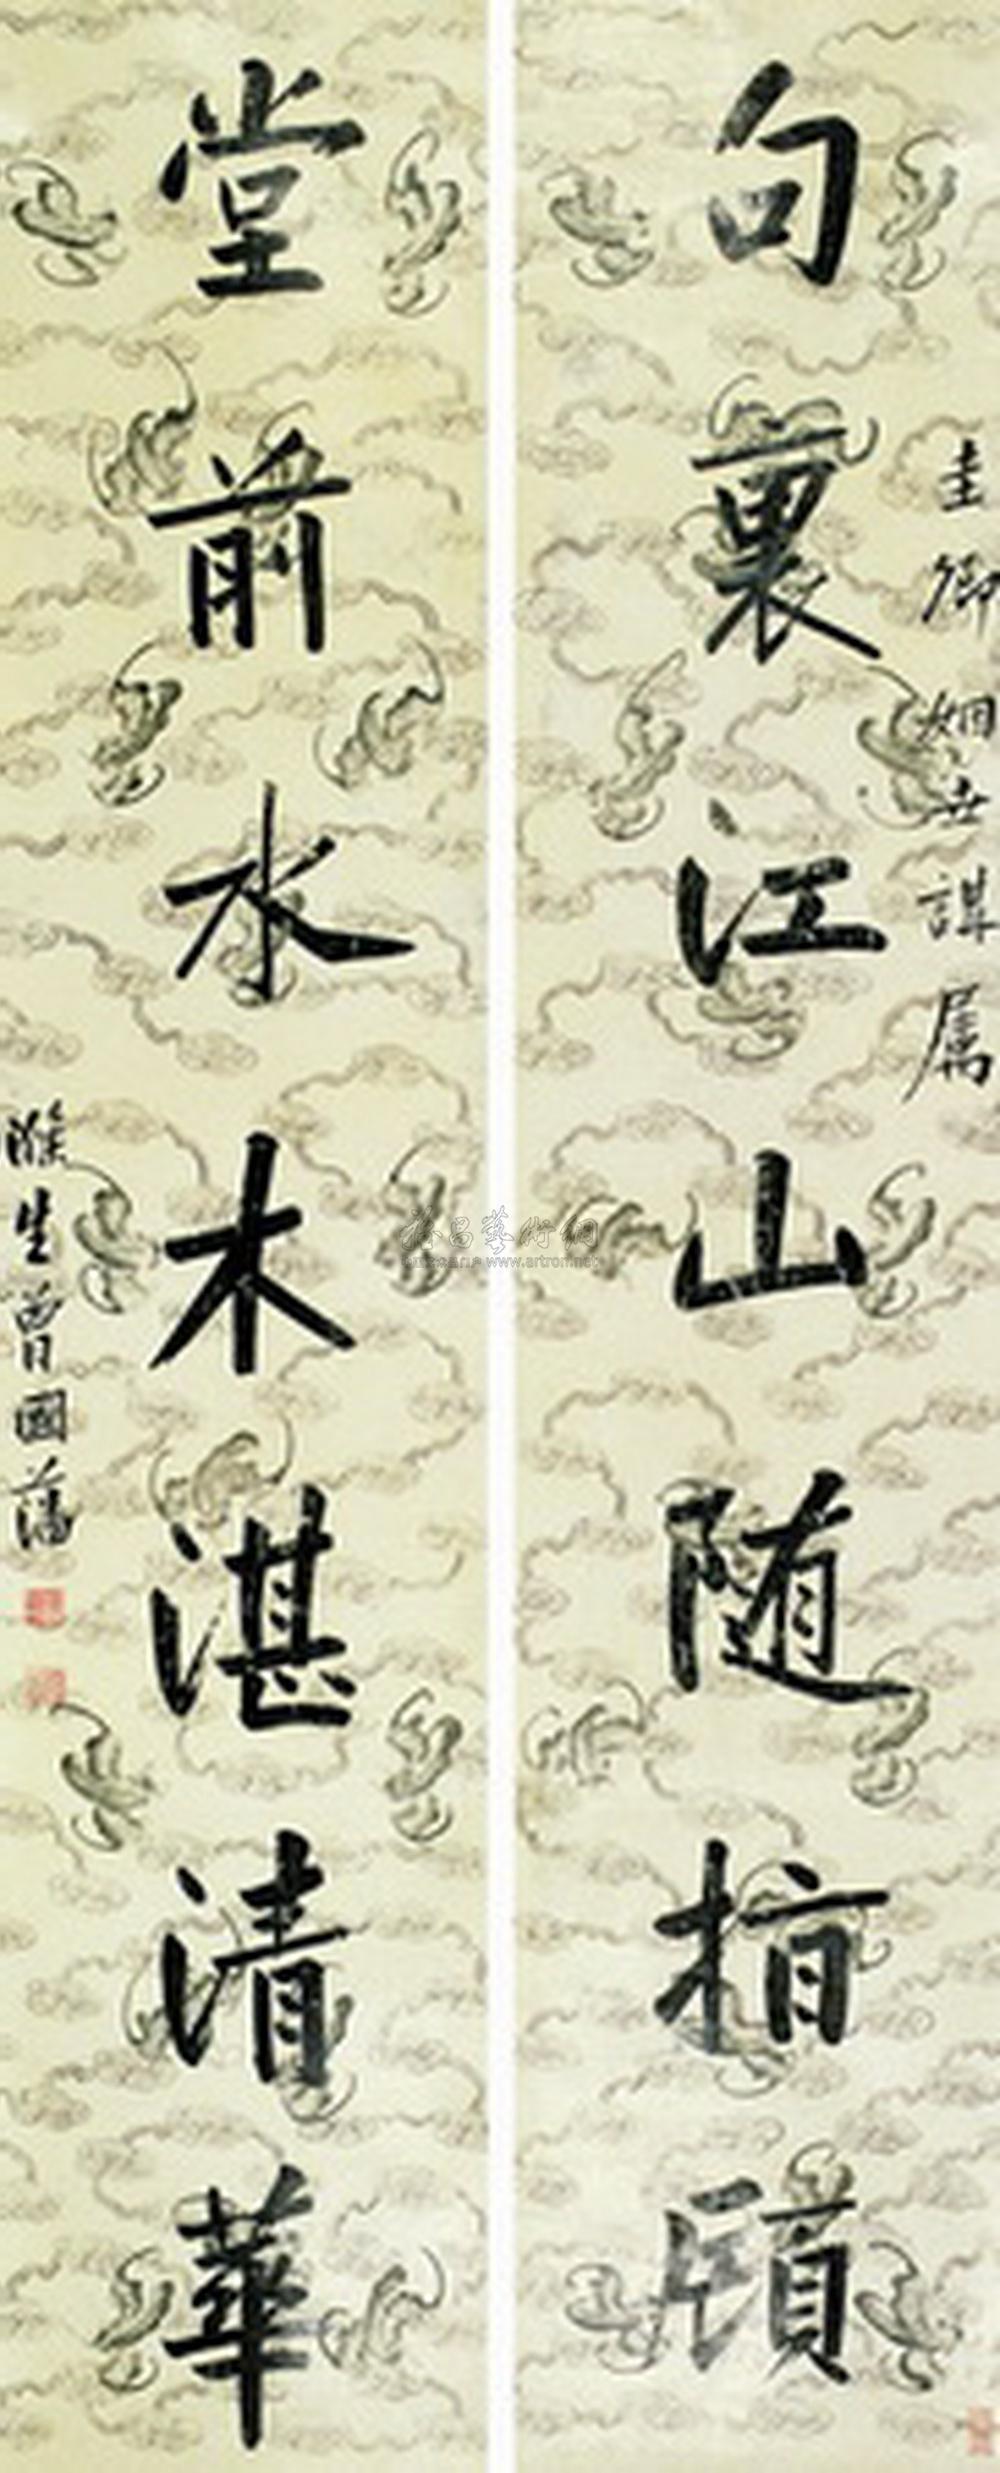 句裏江山随指顧
圭卿姻世講属
堂前水木湛清華
滌生曾國藩
www.artron.net